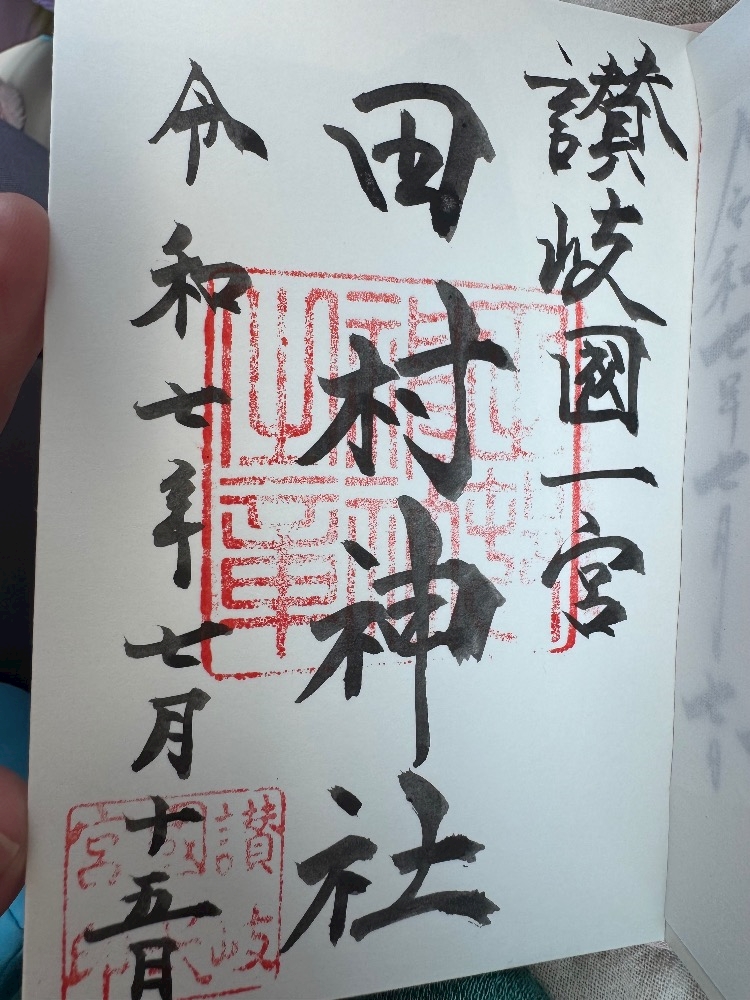 讃岐國一宮
田村神社
令和七年七月十五日
讃岐